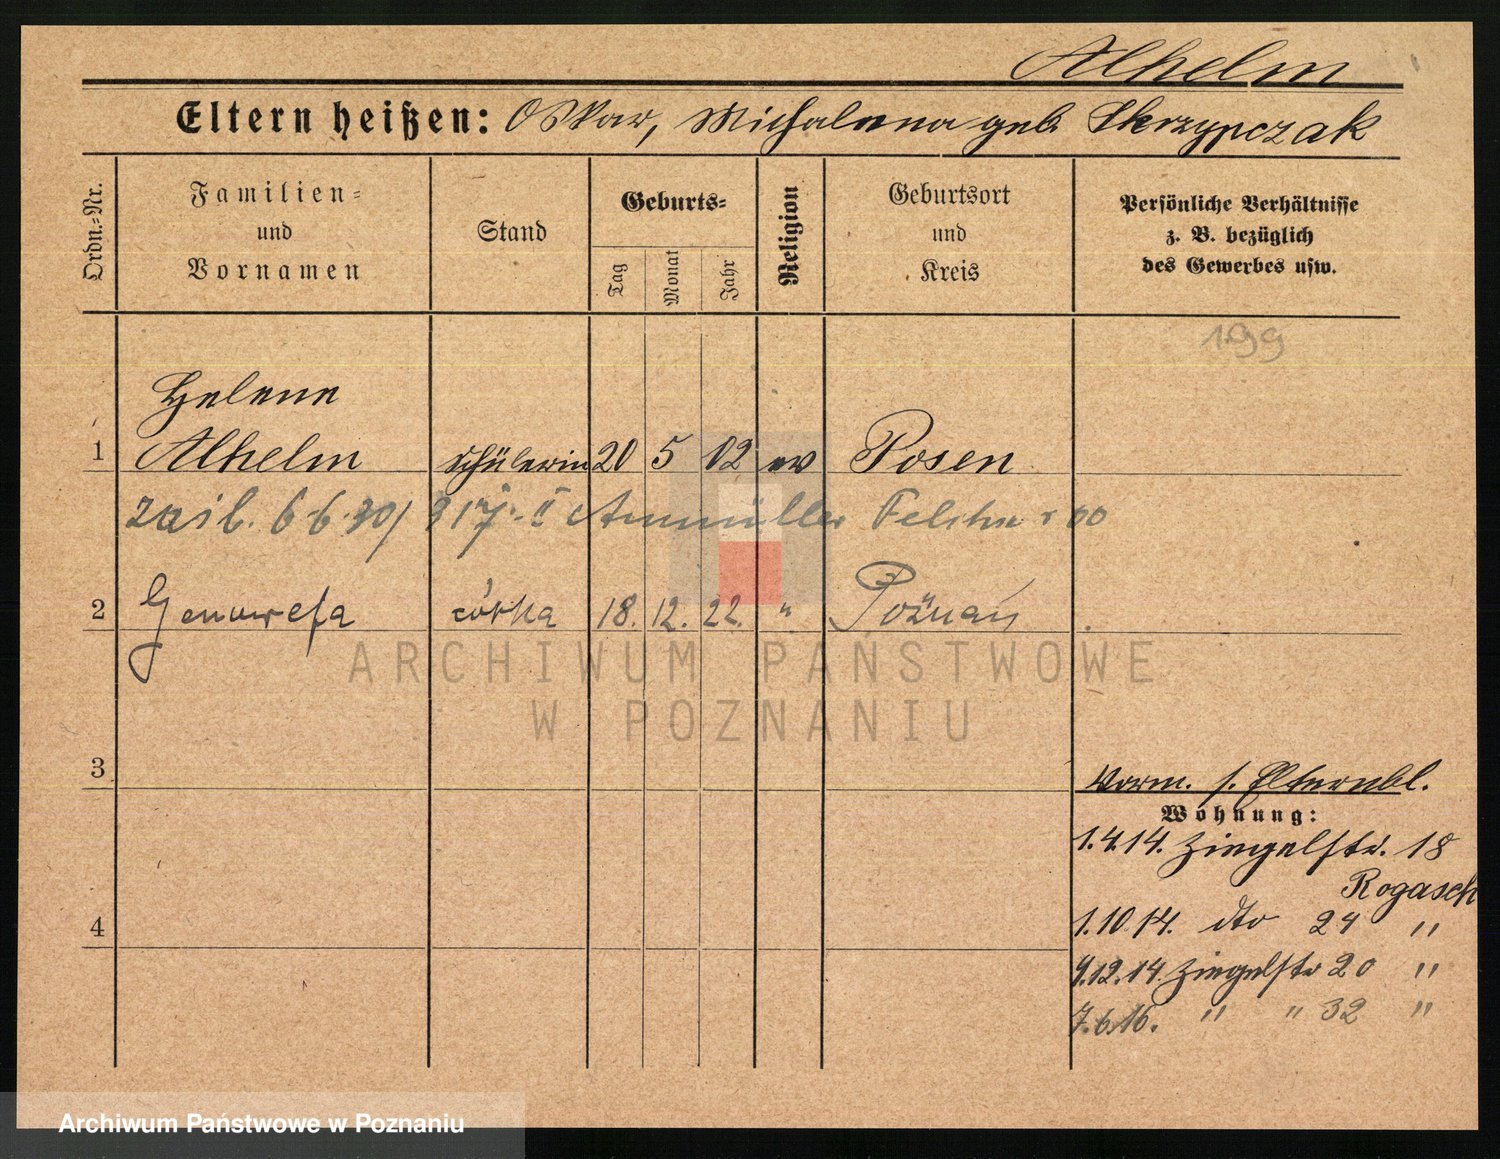 Alhelm
Eltern heißen: Oskar, Michalena geb Skrzypczak
Ordn.=Nr.
Familien=
und
Vornamen
Stand
Geburts=
Tag
Monat
Jahr
Religion
Geburtsort
und
Kreis
Persönliche Verhältnisse
z. B. bezüglich
des Gewerbes usw.
199
Helene
1 Alhelm schülerin 20 5 02 ev Posen
6 6. 30/ 317.
2 Genowefa córka 18. 12. 22. " Poznań
ARCHIWUM PAŃSTWOWE
W POZNANIU
3
Vorm. s. Elternbl.
Wohnung:
1.4.14. Ziegelstr. 18
Rogasch
4
1.10.14. dto 24 "
9.12.14. Ziegelstr 20 "
7.6.16. " " 32 "
Archiwum Państwowe w Poznaniu